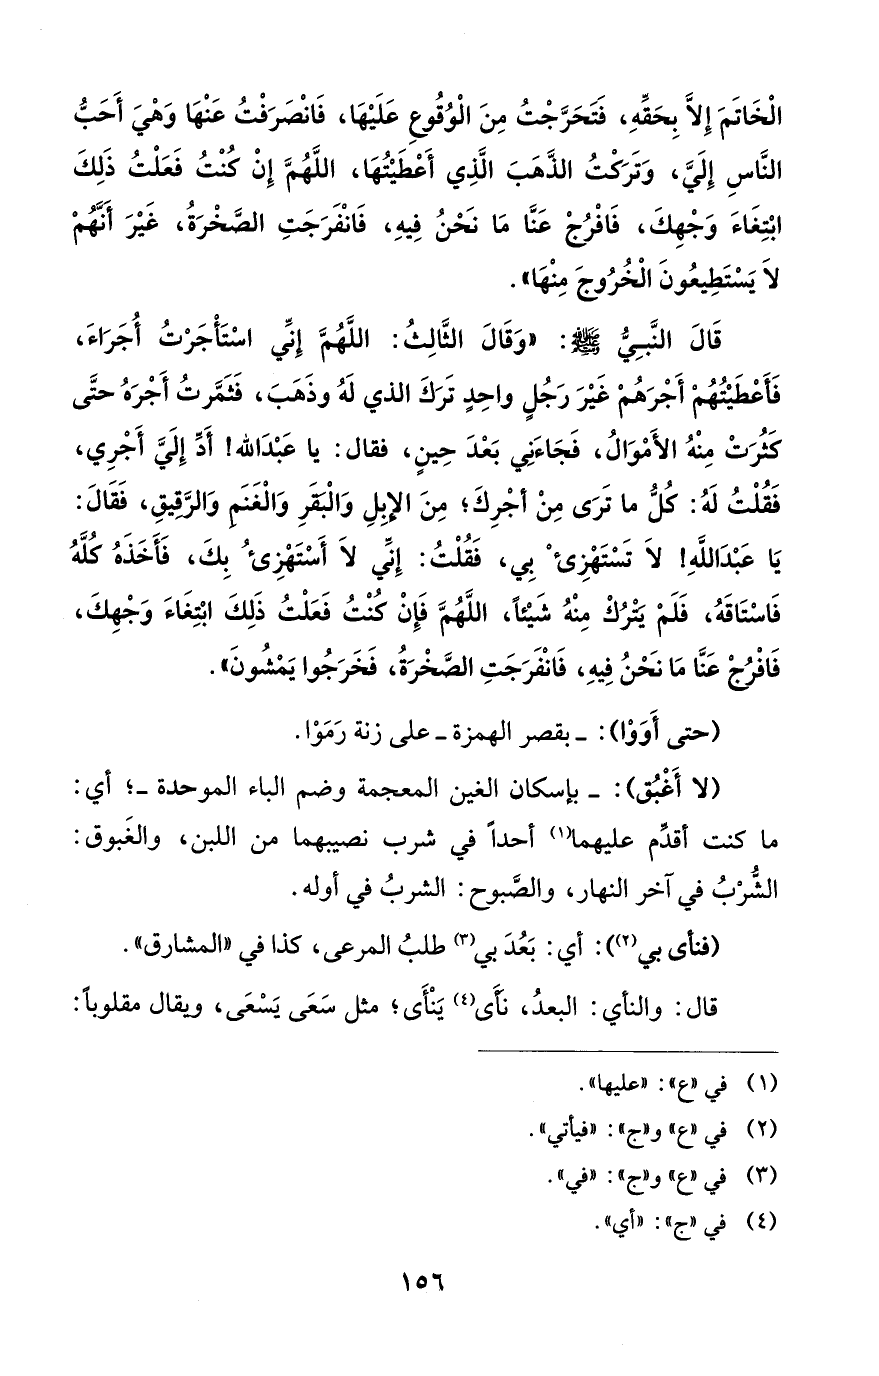 الْخَاتَمَ إِلاَّ بِحَقِّهِ، فَتَحَرَّجْتُ مِنَ الْوُقُوعِ عَلَيْهَا، فَانْصَرَفْتُ عَنْهَا وَهْيَ أَحَبُّ
النَّاسِ إِلَيَّ، وَتَرَكْتُ الذَّهَبَ الَّذِي أَعْطَيْتُهَا، اللَّهُمَّ إِنْ كُنْتُ فَعَلْتُ ذَلِكَ
ابْتِغَاءَ وَجْهِكَ، فَافْرُجْ عَنَّا مَا نَحْنُ فِيهِ، فَانْفَرَجَتِ الصَّخْرَةُ، غَيْرَ أَنَّهُمْ
لاَ يَسْتَطِيعُونَ الْخُرُوجَ مِنْهَا».
قَالَ النَّبِيُّ ﷺ: «وَقَالَ الثَّالِثُ: اللَّهُمَّ إِنِّي اسْتَأْجَرْتُ أُجَرَاءَ،
فَأَعْطَيْتُهُمْ أَجْرَهُمْ غَيْرَ رَجُلٍ واحِدٍ تَرَكَ الذي لَهُ وذَهَبَ، فَثَمَّرتُ أَجْرَهُ حتَّى
كَثُرَتْ مِنْهُ الأَمْوَالُ، فَجَاءَنِي بَعْدَ حِينٍ، فقال: يا عَبْدَالله! أَدِّ إِلَيَّ أَجْرِي،
فَقُلْتُ لَهُ: كُلُّ ما تَرَى مِنْ أجْرِكَ؛ مِنَ الإِبِلِ وَالْبَقَرِ وَالْغَنَمِ وَالرَّقِيقِ، فَقَالَ:
يَا عَبْدَاللَّهِ! لاَ تَسْتَهْزِىءْ بِي، فَقُلْتُ: إِنِّي لاَ أَسْتَهْزِىءُ بِكَ، فَأَخَذَهُ كُلَّهُ
فَاسْتَاقَهُ، فَلَمْ يَتْرُكْ مِنْهُ شَيْئاً، اللَّهُمَّ فَإِنْ كُنْتُ فَعَلْتُ ذَلِكَ ابْتِغَاءَ وَجْهِكَ،
فَافْرُجْ عَنَّا مَا نَحْنُ فِيهِ، فَانْفَرَجَتِ الصَّخْرَةُ، فَخَرَجُوا يَمْشُونَ».
(حتى أَوَوْا): ـ بقصر الهمزة ـ على زنة رَمَوْا.
(لا أَغْبُق): ـ بإسكان الغين المعجمة وضم الباء الموحدة ـ؛ أي:
ما كنت أقدِّم عليهما(١) أحداً في شرب نصيبهما من اللبن، والغَبوق:
الشُّرْبُ في آخر النهار، والصَّبوح: الشربُ في أوله.
(فنأى بي(٢)): أي: بَعُدَ بي(٣) طلبُ المرعى، كذا في «المشارق».
قال: والنأي: البعدُ، نَأَى(٤) يَنْأَى؛ مثل سَعَى يَسْعَى، ويقال مقلوباً:
(١) في «ع»: «عليها».
(٢) في «ع» و«ج»: «فيأتي».
(٣) في «ع» و«ج»: «في».
(٤) في «ج»: «أي».
١٥٦